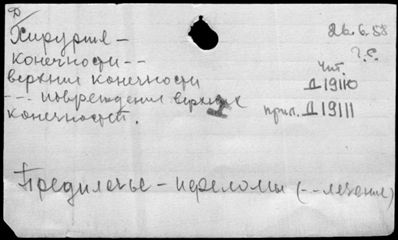 Д
Хирургия –
конечности --
верхния конечности
--- повреждения верхних
конечностей.
26.6.58
г.Е.
Чит.
Д 19110
прил. Д 19111
Предплечье – переломы (--лечение)